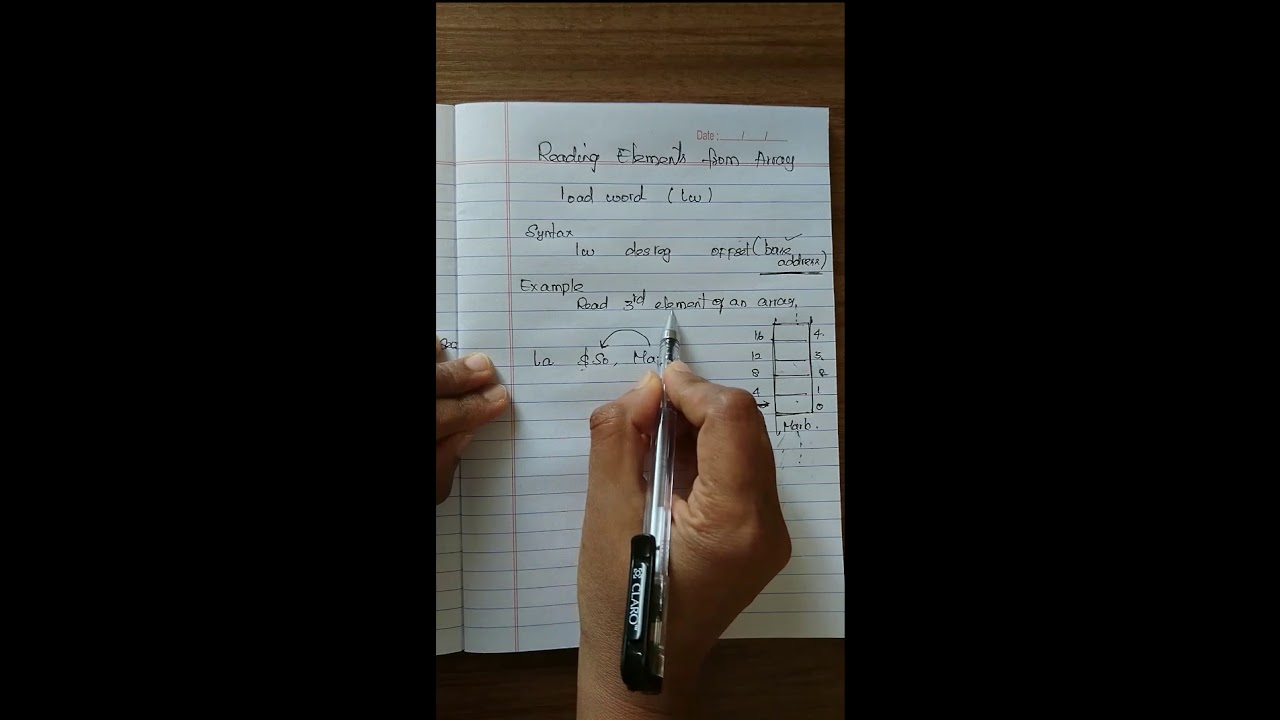 Date : / /
Reading Elements from Array
load word (lw)
Syntax
lw desreg offset (base
address)
Example
Read 3rd element of an array.
la $S0, Ma
16 4
12 3
8 2
4 1
0
CLARO